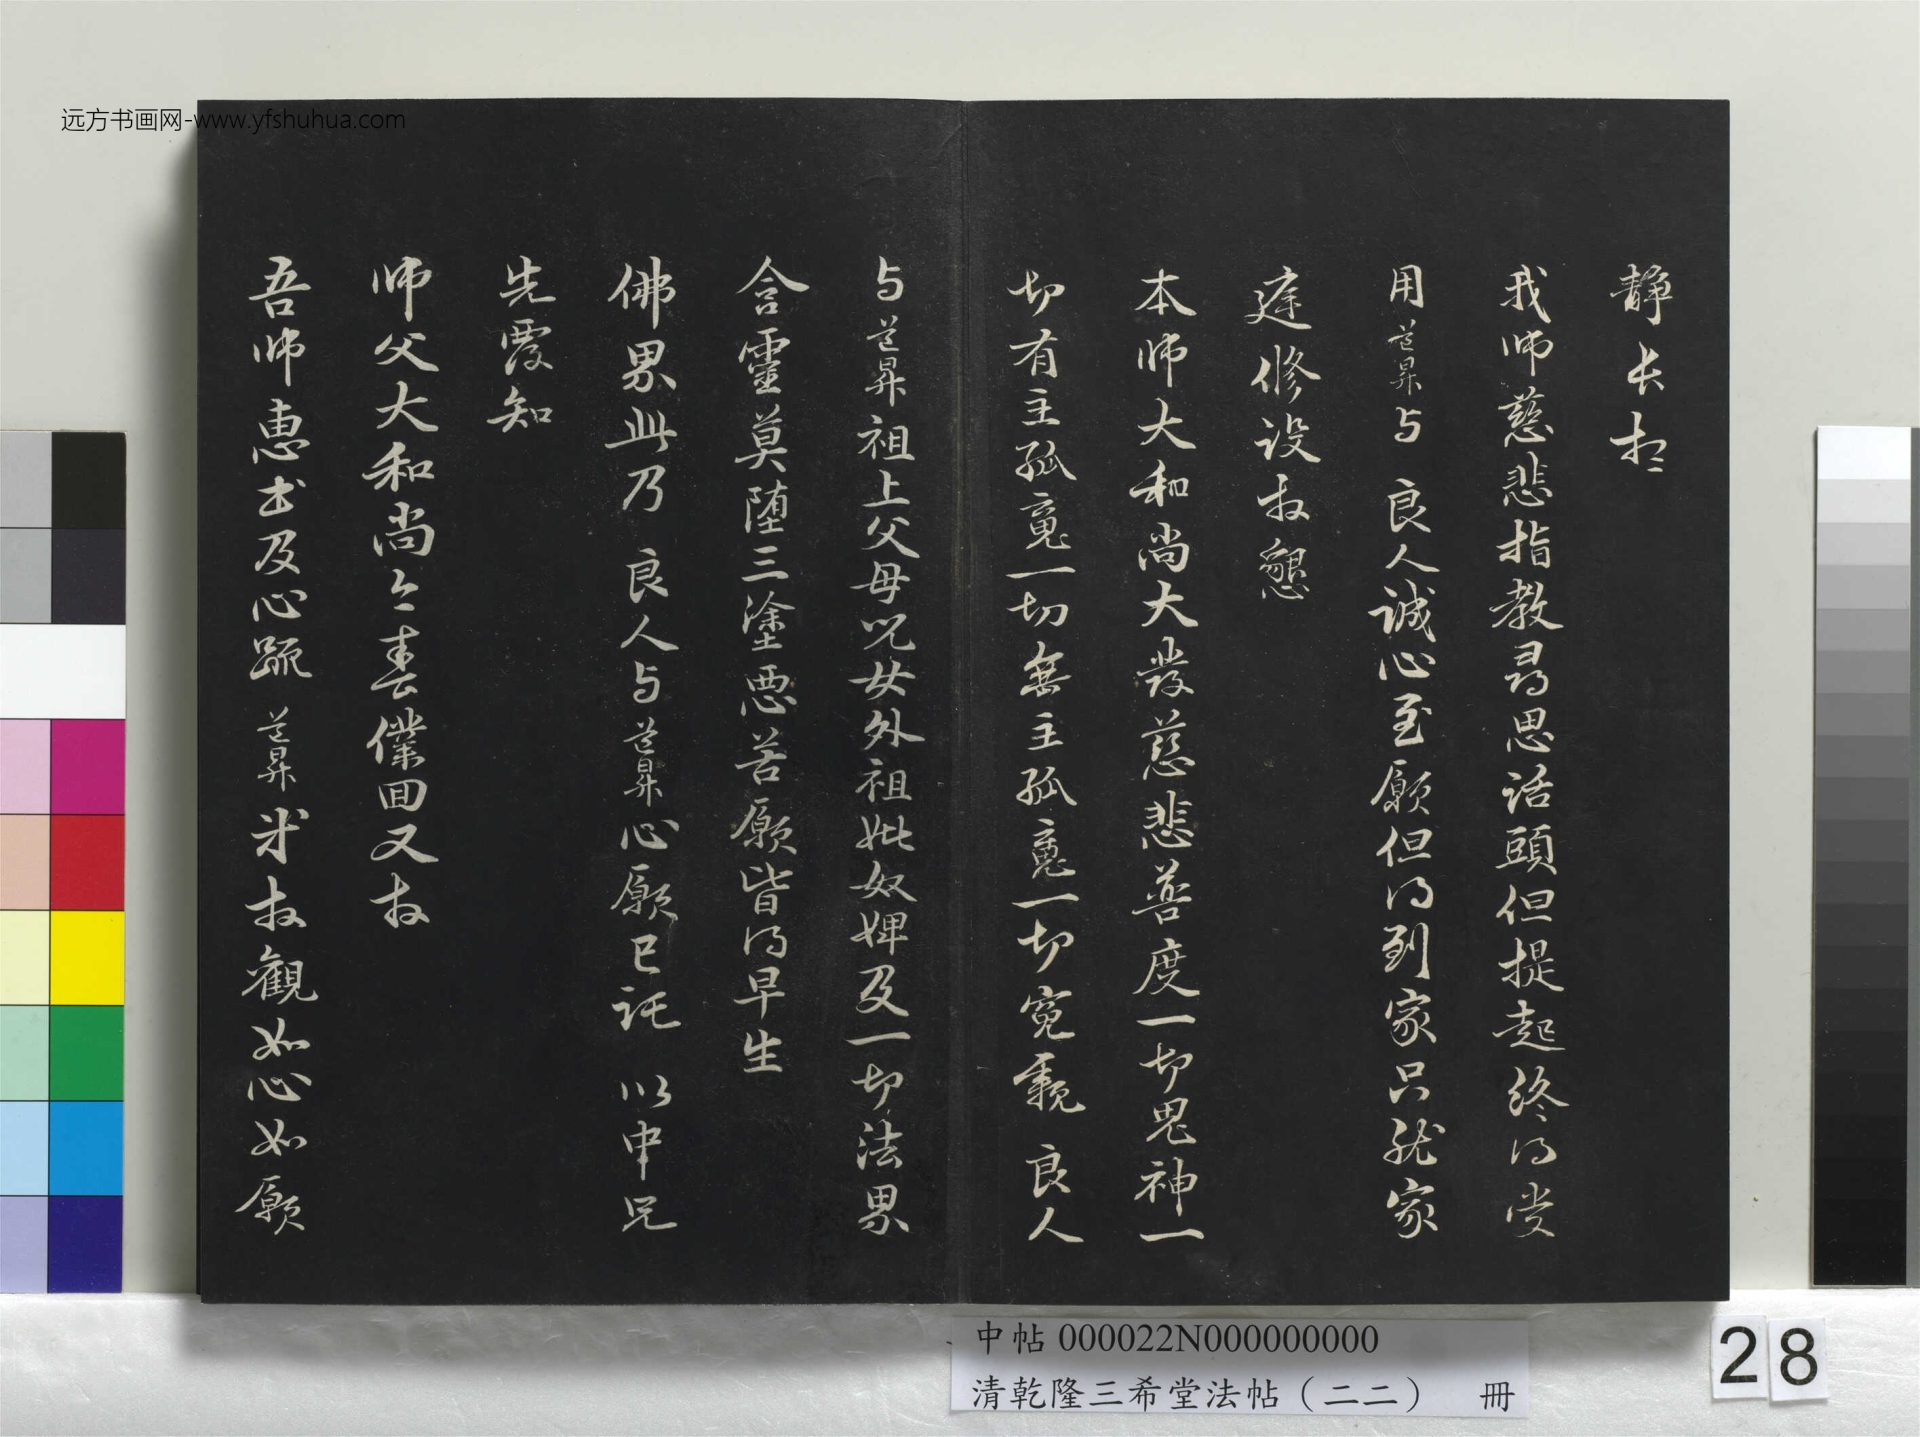 远方书画网-www.yfshuhua.com
静长老
我师慈悲指教寻思话頭但提起终得受
用道昇与 良人诚心至願但得到家只就家
庭修设拜懇
本师大和尚大發慈悲普度一切鬼神一
切有主孤魂一切無主孤魂一切冤親 良人
与道昇祖上父母児女外祖妣奴婢及一切法界
含靈莫堕三塗恶苦願皆得早生
佛界此乃 良人与道昇心願已託 以中兄
先覆知
师父大和尚今春僕回又拜
吾师惠书及心疏 道昇拜観如心如願
中帖 000022N000000000
清乾隆三希堂法帖（二二） 冊
28